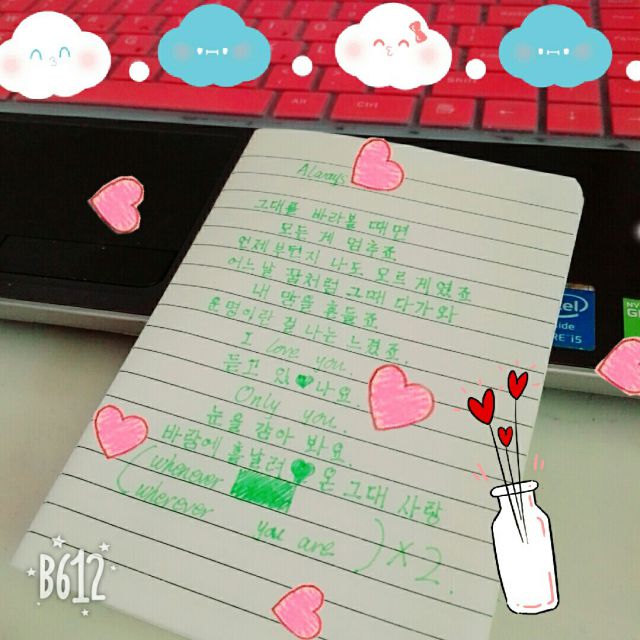 Always
그대를 바라볼 때면
모든 게 멈추죠
언제부턴지 나도 모르게였죠
어느 날 꿈처럼 그대 다가와
내 맘을 흔들죠
운명이란 걸 나는 느꼈죠.
I love you.
듣고 있나요.
Only you.
눈을 감아 봐요.
바람에 흩날려 온 그대 사랑
(whenever
wherever you are) x 2.
Alt
Ctrl
Shift
intel
inside
CORE i5
B612